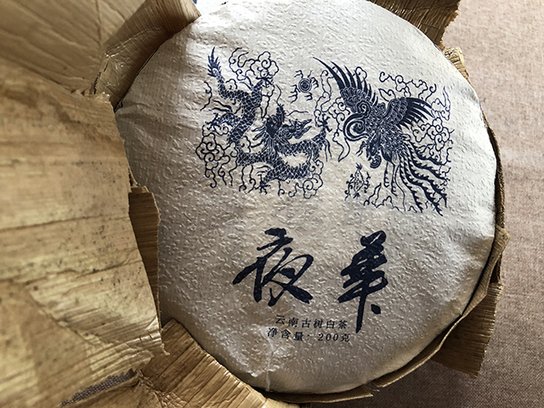 夜華
云南古树白茶
净含量：200克